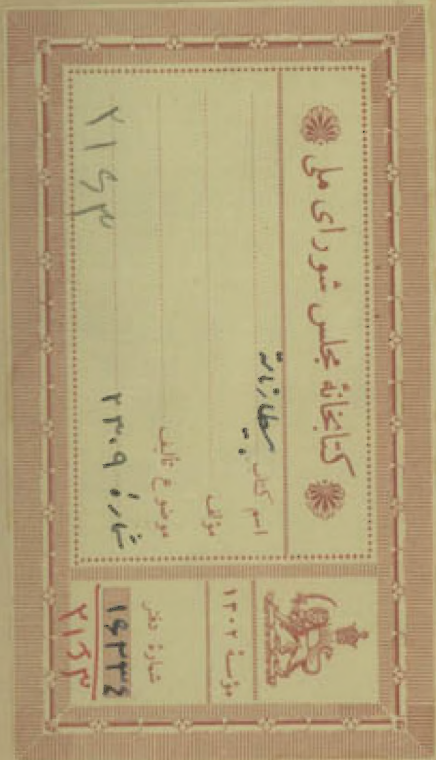 کتابخانهٔ مجلس شورای ملی
اسم کتاب
مؤلف
موضوع تألیف
شمارهٔ ۲۳۰۹
۲۱۶۳
مؤسسهٔ ۱۳۰۲
شمارهٔ دفتر
۱۶۳۳۴
۲۱۶۳